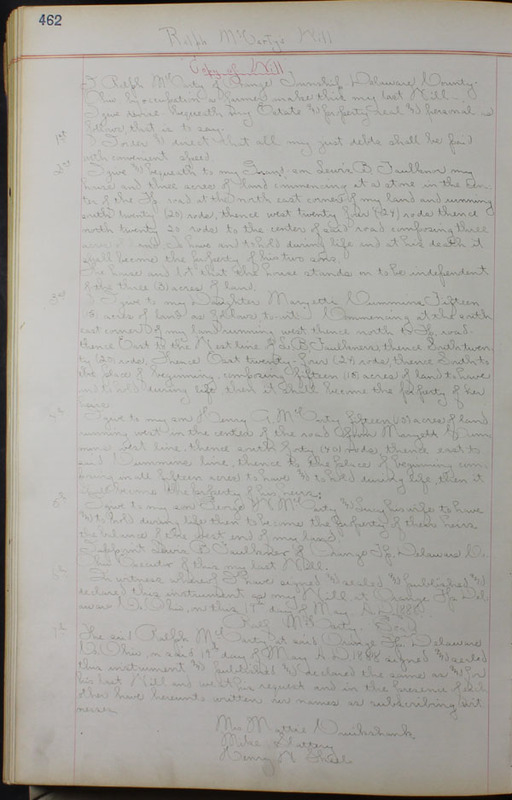 462
Ralph McCarty's Will
Copy of Will
I Ralph McCarty of Orange Township Delaware County
Ohio by occupation a farmer make this my last Will.
I give devise bequeath my Estate & property real & personal as
follows that is to say:
1st I order & direct that all my just debts shall be paid
with convenient speed.
2nd I give & bequeath to my son Lewis B. Faulkner my
house and three acres of land commencing at a stone in the cen
ter of the road at the north east corner of my land and running
south twenty (20) rods, thence west twenty four (24) rods thence
north twenty 20 rods to the center of said road composing three
acres of land to have and to hold during life and at his death it
shall become the property of his two sons.
The house and lot that the house stands on to be independent
of the three (3) acres of land.
3rd I give to my Daughter Margette Cummins Fifteen
(15) acres of land as follows to wit: Commencing at the south
east corner of my land running west thence north to road
thence East to the West line of L. B. Faulkners thence South twen
ty (20) rods, thence East twenty-four (24) rods, thence South to
the place of beginning, composing fifteen (15) acres of land to have
and to hold during life then it shall become the property of her
heirs.
4th I give to my son Henry G. McCarty fifteen (15) acres of land
running west in the center of the road from Margette Cum
mins West line, thence south forty (40) rods, thence east to
said Cummins line, thence to the place of beginning com
posing in all fifteen acres to have & to hold during life, then it
shall become the property of his heirs.
5th I give to my son George McCarty & Lucy his wife to have
& to hold during life then to become the property of their heirs
the balance of the west end of my land.
I appoint Lewis B. Faulkner of Orange Tp. Delaware Co.
Executor of this my last Will.
In witness whereof I have signed & sealed & published &
declared this instrument as my Will, at Orange Tp. Del
aware Co. Ohio, on this 19th day of May A.D. 1888.
Ralph McCarty. Seal
The said Ralph McCarty at said Orange Tp. Delaware
Co. Ohio on said 19th day of May A.D. 1888 signed & sealed
this instrument & published & declared the same as & for
his last Will and we at his request and in the presence of each
other have hereunto written our names as subscribing wit
nesses.
Mrs Mattie Cruikshank.
Mike Slattery
Henry